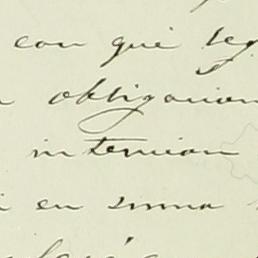 con que leg
obligacion
intencion
i en suma